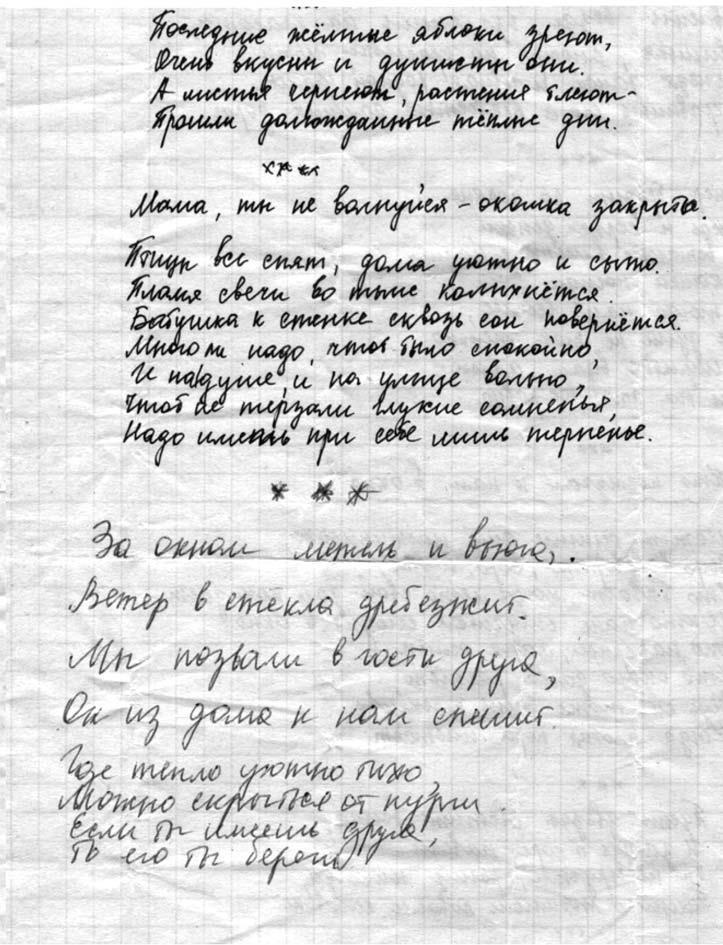 Последние жёлтые яблоки зреют,
Очень вкусны и душисты они.
А листья чернеют, растения тлеют -
Прошли долгожданные тёплые дни.
****
Мама, ты не волнуйся - окошка закрыта.
Птицы все спят, дома уютно и сыто.
Пламя свечи во тьме колыхнётся.
Бабушка к стенке сквозь сон повернётся.
Много ли надо, чтоб было спокойно,
И на душе, и на улице вольно,
Чтоб не терзали глухие сомненья,
Надо иметь при себе лишь терпенье.
* * *
За окном метель и вьюга,.
Ветер в стёкла дребезжит.
Мы позвали в гости друга,
Он из дома к нам спешит.
Где тепло уютно тихо,
Можно скрыться от пурги.
Если ты имеешь друга,
То его ты береги